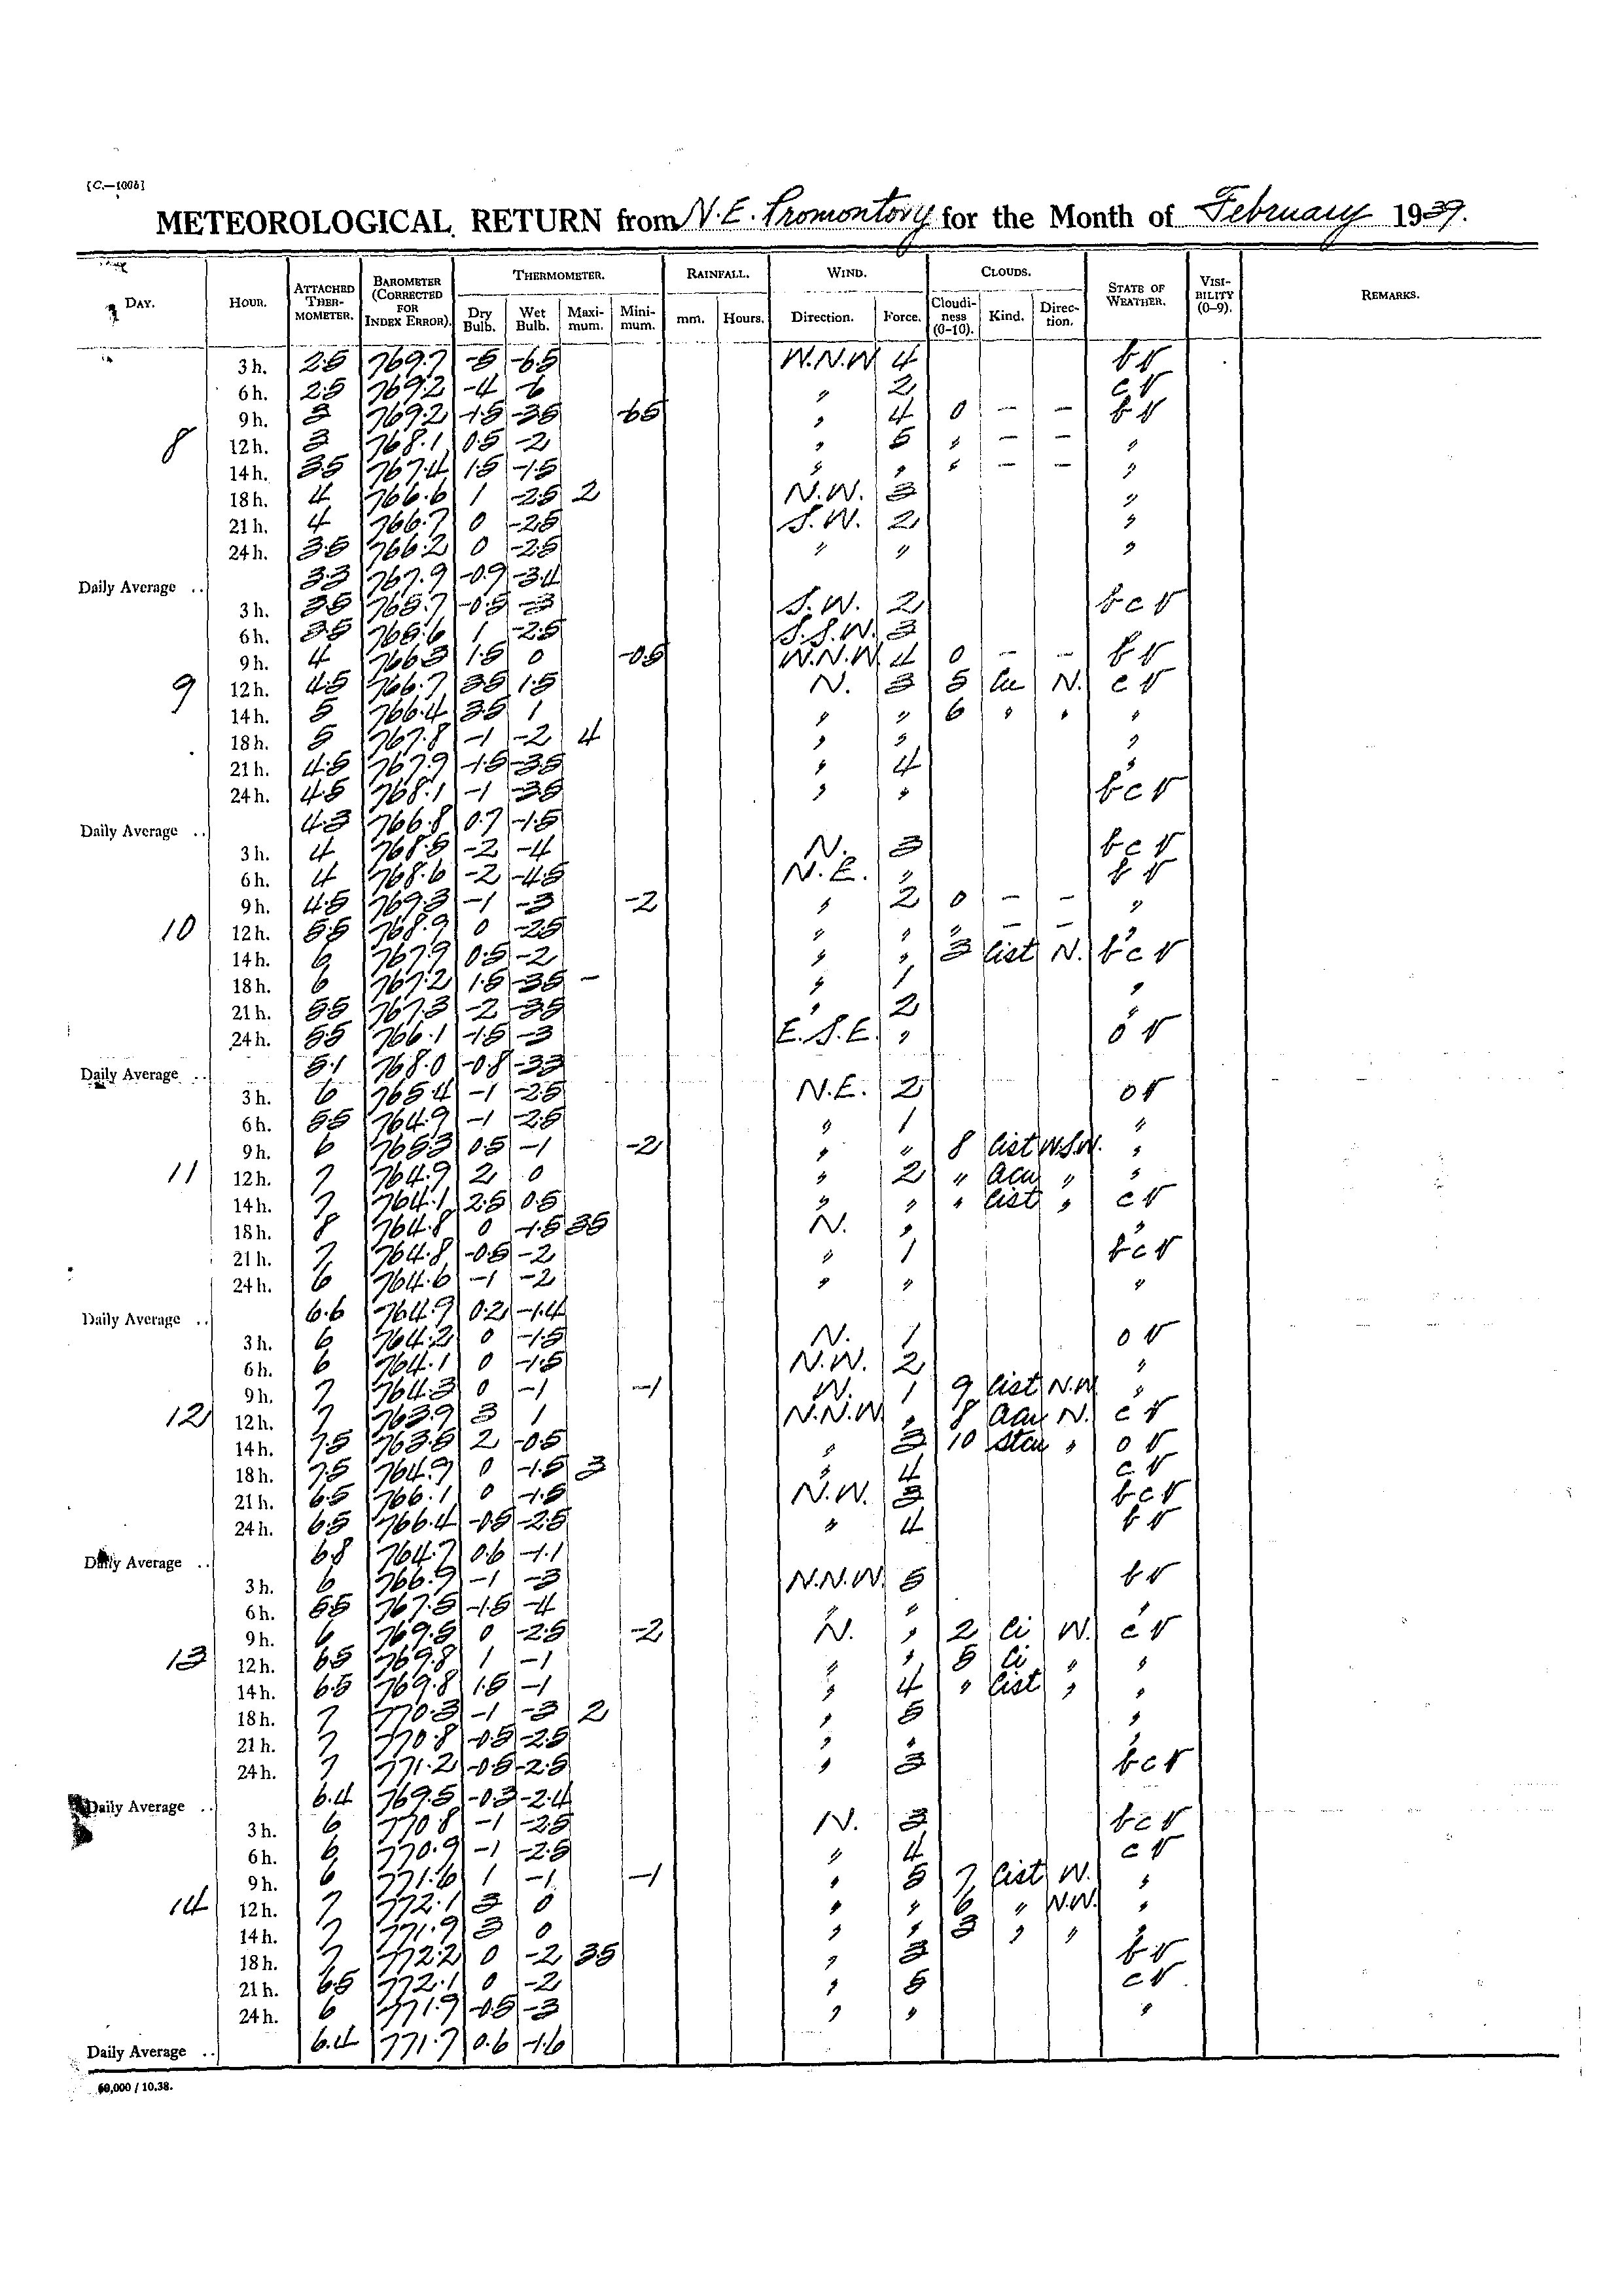 [C.—100b]
METEOROLOGICAL RETURN from N.E. Promontory for the Month of February 1939.
DAY. HOUR. ATTACHED THER- MOMETER. BAROMETER (CORRECTED FOR INDEX ERROR). THERMOMETER. RAINFALL. WIND. CLOUDS. STATE OF WEATHER. VISI- BILITY (0–9). REMARKS.
Dry Bulb. Wet Bulb. Maxi- mum. Mini- mum. mm. Hours. Direction. Force. Cloudi- ness (0–10). Kind. Direc- tion.
3 h. 2.5 769.7 -5 -6.5 W.N.W 4 b v
6 h. 2.5 769.2 -4 -6 " 2 c v
9 h. 3 769.2 -1.5 -3.5 -6.5 " 4 0 — — b v
8 12 h. 3 768.1 0.5 -2 " 5 " — — "
14 h. 3.5 767.4 1.5 -1.5 " " " — — "
18 h. 4 766.6 1 -2.5 2 N.W. 3 "
21 h. 4 766.7 0 -2.5 S.W. 2 "
24 h. 3.5 766.2 0 -2.5 " " "
Daily Average .. 3.3 767.9 -0.9 -3.4
3 h. 3.5 765.7 -0.5 -3 S.W. 2 b c v
6 h. 3.5 765.6 1 -2.5 S.S.W. 3
9 h. 4 766.3 1.5 0 -0.5 W.N.W 4 0 — — b v
9 12 h. 4.5 766.7 3.5 1.5 N. 3 5 Cu N. c v
14 h. 5 766.4 3.5 1 " " 6 " " "
18 h. 5 767.8 -1 -2 4 " " "
21 h. 4.5 767.9 -1.5 -3.5 " 4 "
24 h. 4.5 768.1 -1 -3.5 " " b c v
Daily Average .. 4.3 766.8 0.7 -1.5
3 h. 4 768.5 -2 -4 N. 3 b c v
6 h. 4 768.6 -2 -4.5 N.E. " b v
9 h. 4.5 769.3 -1 -3 -2 " 2 0 — — "
10 12 h. 5.5 768.9 0 -2.5 " " " — — "
14 h. 6 767.9 0.5 -2 " " 3 Cist N. b c v
18 h. 6 767.2 1.5 -3.5 — " 1 "
21 h. 5.5 767.3 -2 -3.5 " 2 "
24 h. 5.5 766.1 -1.5 -3 E.S.E. " o v
Daily Average .. 5.1 768.0 -0.8 -3.3
3 h. 6 765.4 -1 -2.5 N.E. 2 o v
6 h. 5.5 764.9 -1 -2.5 " 1 "
9 h. 6 765.3 0.5 -1 -2 " " 8 Cist W.S.W. "
11 12 h. 7 764.9 2 0 " 2 " Acu " "
14 h. 7 764.1 2.5 0.5 " " " Cist " c v
18 h. 8 764.8 0 -1.5 3.5 N. " "
21 h. 7 764.8 -0.5 -2 " 1 b c v
24 h. 6 764.6 -1 -2 " " "
Daily Average .. 6.6 764.9 0.2 -1.4
3 h. 6 764.2 0 -1.5 N. 1 o v
6 h. 6 764.1 0 -1.5 N.W. 2 "
9 h. 7 764.3 0 -1 -1 W. 1 9 Cist N.W "
12 12 h. 7 763.9 3 1 N.N.W " 8 Acu N. c v
14 h. 7.5 763.5 2 -0.5 " 3 10 Stcu " o v
18 h. 7.5 764.9 0 -1.5 3 " 4 c v
21 h. 6.5 766.1 0 -1.5 N.W. 3 b c v
24 h. 6.5 766.4 -0.5 -2.5 " 4 b v
Daily Average .. 6.8 764.7 0.6 -1.1
3 h. 6 766.9 -1 -3 N.N.W. 5 b v
6 h. 5.5 767.5 -1.5 -4 " " "
9 h. 6 769.5 0 -2.5 -2 N. " 2 Ci W. c v
13 12 h. 6.5 769.8 1 -1 " " 5 Ci " "
14 h. 6.5 769.8 1.5 -1 " 4 " Cist " "
18 h. 7 770.3 -1 -3 2 " 5 "
21 h. 7 770.8 -0.5 -2.5 " " "
24 h. 7 771.2 -0.5 -2.5 " 3 b c v
Daily Average .. 6.4 769.5 -0.3 -2.4
3 h. 6 770.8 -1 -2.5 N. 3 b c v
6 h. 6 770.9 -1 -2.5 " 4 c v
9 h. 6 771.6 1 -1 -1 " 5 7 Cist W. "
14 12 h. 7 772.1 3 0 " " 6 " N.W. "
14 h. 7 771.9 3 0 " " 3 " " "
18 h. 7 772.2 0 -2 3.5 " 3 b v
21 h. 6.5 772.1 0 -2 " 5 c v
24 h. 6 771.9 -0.5 -3 " " "
Daily Average .. 6.4 771.7 0.6 -1.6
60,000 / 10.38.